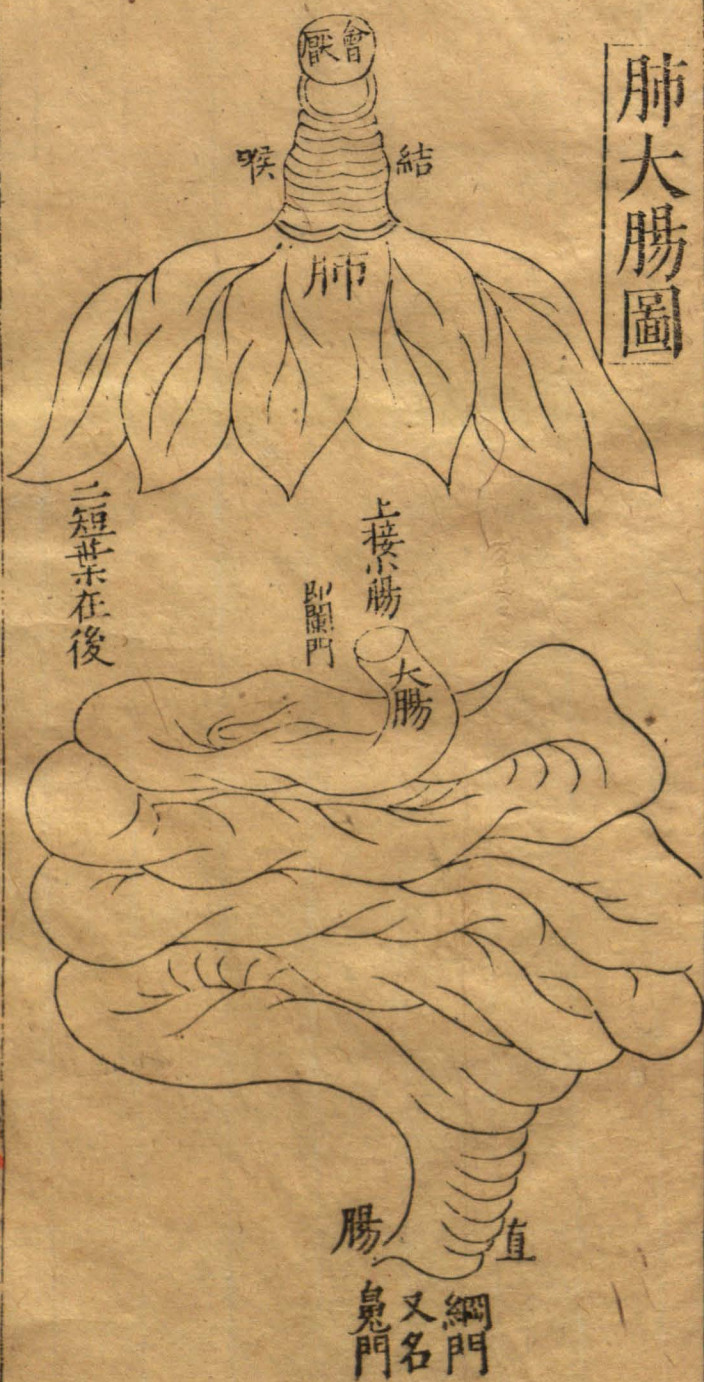 肺大腸圖
會厭
結喉
肺
二短葉在後
上接小腸
即闌門
大腸
直腸
綱門
又名
魄門